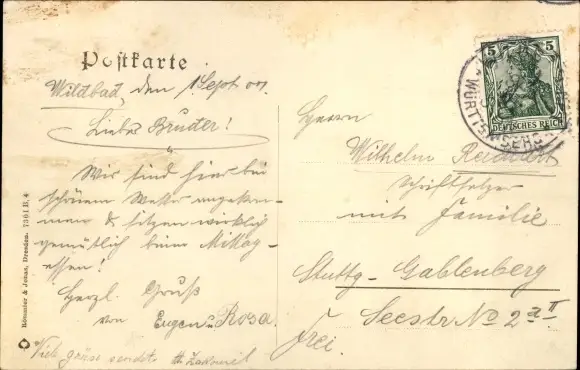 Postkarte
Wildbad, den 1. Sept. 07.
Lieber Bruder!
Wir sind hier bei
schönem Wetter angekom-
men & sitzen wirklich
gemütlich beim Mittag-
essen!
Herzl. Gruß
von Eugen u. Rosa.
Viele grüse sendet
Herrn
Wilhelm
Schriftsetzer
mit Familie
Stuttg.-Gablenberg
Seestr. No 2a II
frei.
5 5
DEUTSCHES REICH
WÜRTT
Römmler & Jonas, Dresden. 7361 B. 4